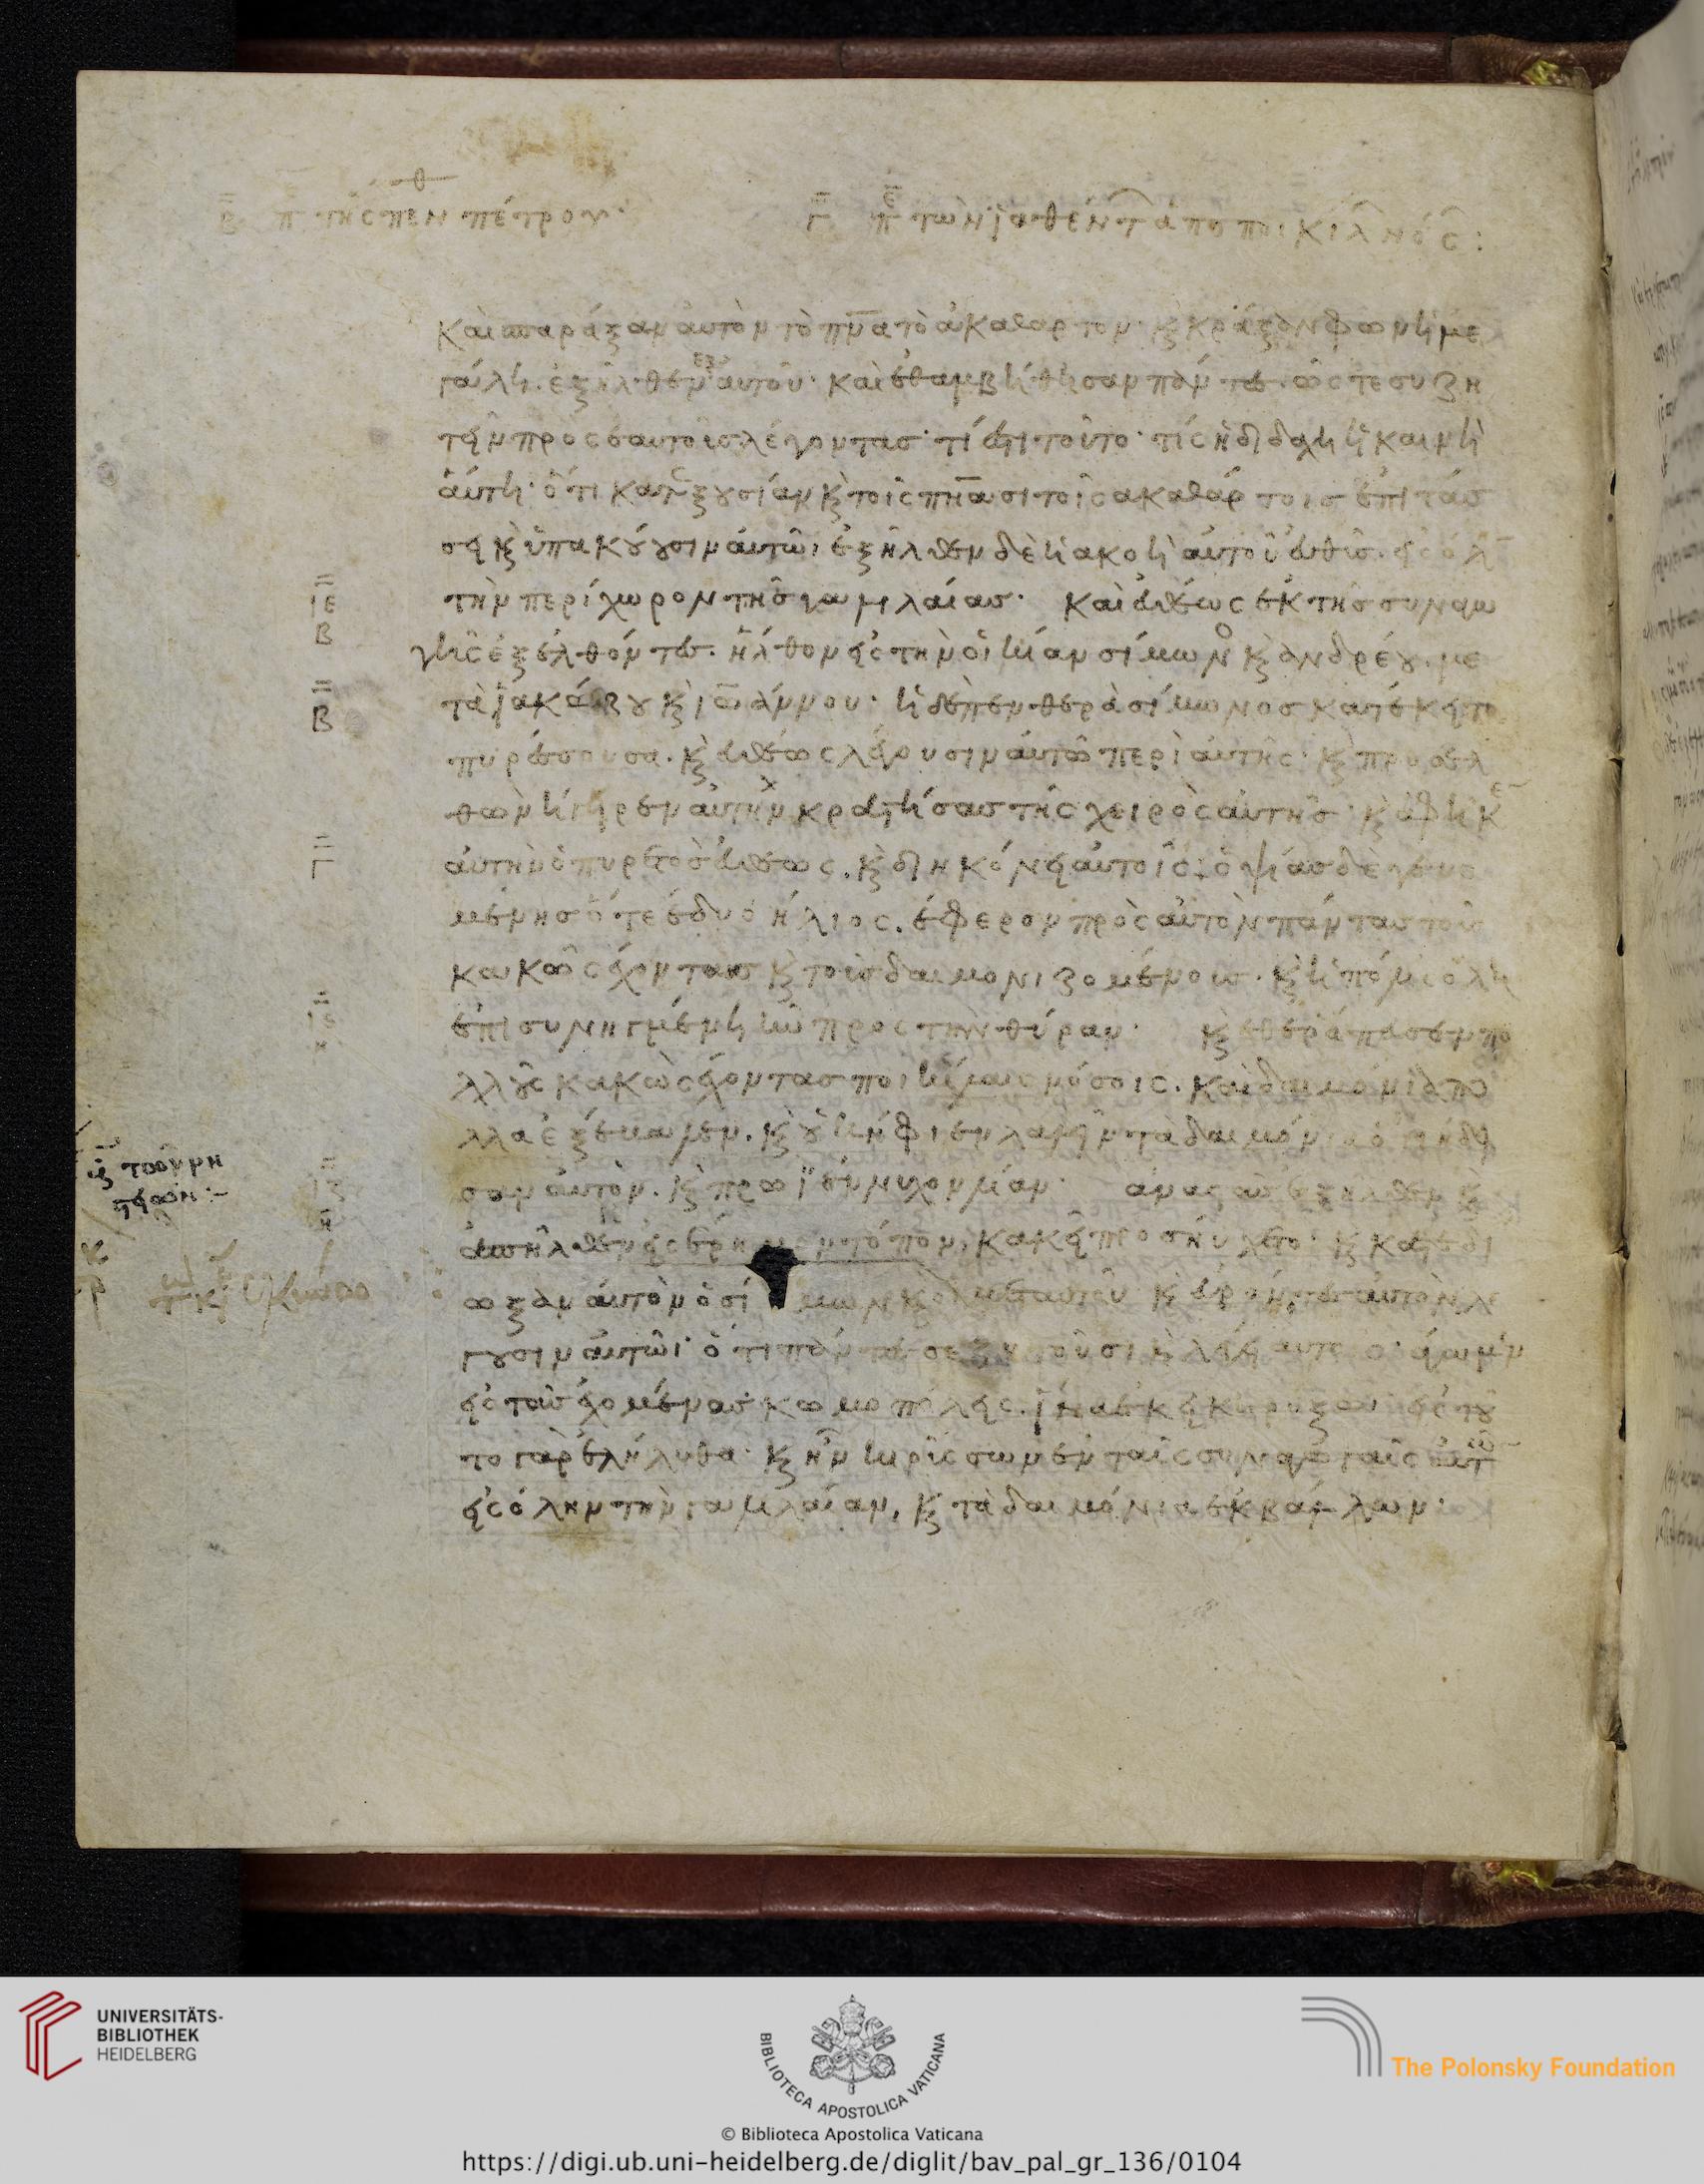 Β π τῆς πενθ πέτρου·
Γ πε τῶν ἰαθέντ ἀπο ποικίλ νόσ:
και σπαράξαν αυτὸν τὸ πν̅α τὸ ἀκάθαρτον· κ̀ κράξον φωνῆ με
γάλη. ἐξῆλθεν εξ αυτοῦ· και ἐθαμβήθησαν πάντες. ὥςτε συζη
τεῖν πρὸς ἑαυτοὺς λέγοντας· τί ἐστι τοῦτο· τίς ἡ διδαχὴ ἡ καινὴ
ἁύτη· ὅτι κατ ἐξουσίαν κ̀ τοῖς πν̅ασι τοῖς ακαθάρτοις ἐπιτάσ
σει κ̀ ὑπακούουσιν αὐτῶι ἐξῆλθεν δὲ ἡ ακοὴ αὐτοῦ εὐθὺς. εἰς ὅλ
τὴν περίχωρον τῆς γαλιλαίας· Και εὐθέως ἐκ τῆς συναγω
γῆς ἐξελθόντες. ἦλθον εἰς τὴν οἰκίαν σίμωνο κ̀ ἀνδρέου. με
τὰ ἰακώβου κ̀ ἰωάννου· ἡ δὲ πενθερὰ σίμωνος κατέκειτο
πυρέσσουσα. κ̀ εὐθέως λέγουσιν αὐτῶ περὶ αὐτῆς· κ̀ προσελ
θὼν ἤγειρεν αὐτὴν κρατήσας τῆς χειρὸς αὐτῆς· κ̀ ἀφῆκε
αὐτὴν ὁ πυρετὸς εὐθέως. κ̀ διηκόνει αὐτοῖς: ὀψίας δὲ γενο
μένης ὅτε ἔδυ ὁ ἥλιος. ἔφερον πρὸς αὐτὸν πάντας τοὺς
κακῶς ἔχοντας κ̀ τοὺς δαιμονιζομένους. κ̀ ἡ πόλις ὅλη
ἐπισυνηγμένη ἦν προς τὴν θύραν· κ̀ ἐθεράπευσεν πο
λλοὺς κακῶς ἔχοντας ποικίλαις νόσοις. και δαιμόνια πο
λλα ἐξέβαλεν. κ̀ οὐκ ἤφιεν λαλεῖν τὰ δαιμόνια ὅτι ἤδει
σαν αὐτὸν. κ̀ πρωῒ ἔννυχον λίαν· ἀναστὰς ἐξῆλθεν κ̀
ἀπῆλθεν εἰς ἔρημον τόπον, κακεῖ προσηύχετο· κ̀ κατεδί
ωξαν αὐτὸν ὁ σίμων κ̀ οἱ μετ αυτοῦ κ̀ εὑρόντες αὐτὸν λέ
γουσιν αὐτῶι· ὅτι πάντες σε ζητοῦσι κ̀ λέγει αυτοῖς· ἄγωμεν
εἰς τὰς ἐχομένας κωμοπόλεις. ἵνα ἐκεῖ κηρύξω εἰς τοῦ
το γὰρ ἐλήλυθα· κ̀ ἦν κηρύσσων ἐν ταῖς συναγωγαῖς αὐτῶν
εἰς ὅλην την γαλιλαίαν, κ̀ τὰ δαιμόνια ἐκβάλλων·
ΙΕ
Β
Β
Γ
ΙϚ
ΙΖ
Η
UNIVERSITÄTS-
BIBLIOTHEK
HEIDELBERG
BIBLIOTECA APOSTOLICA VATICANA
The Polonsky Foundation
© Biblioteca Apostolica Vaticana
https://digi.ub.uni-heidelberg.de/diglit/bav_pal_gr_136/0104